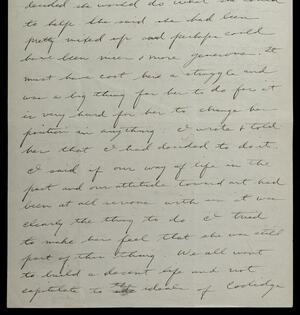 decided she would do what she could
to help. She said she had been
pretty mixed up and perhaps could
have been nicer & more generous. It
must have cost her a struggle and
was a big thing for her to do for it
is very hard for her to change her
position in anything. I wrote & told
her that I had decided to do it.
I said if our way of life in the
past and our attitude toward art had
been at all serious with us it was
clearly the thing to do I tried
to make her feel that she was still
part of this thing. We all want
to build a decent life and not
capitulate to the ideals of Coolidge